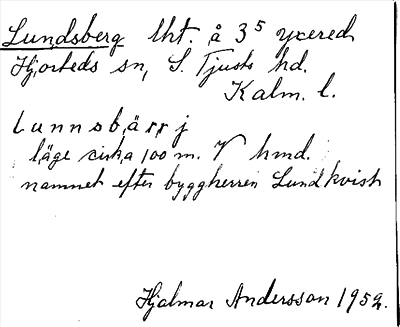 Lundsberg lht. å 3⁵ yxered
Hjorteds sn, S. Tjusts hd.
Kalm. l.
Lunnsbärrj
läge cirka 100 m. V hmd.
namnet efter byggherren Lundkvist
Hjalmar Andersson 1952.